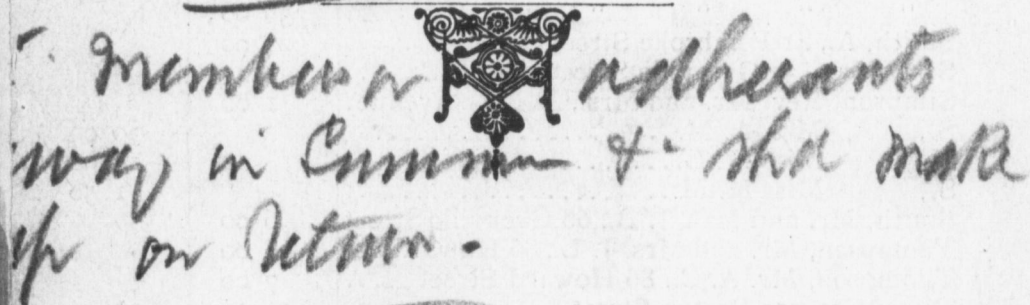 Members or adherants
way in Summer & shd make
up on return.